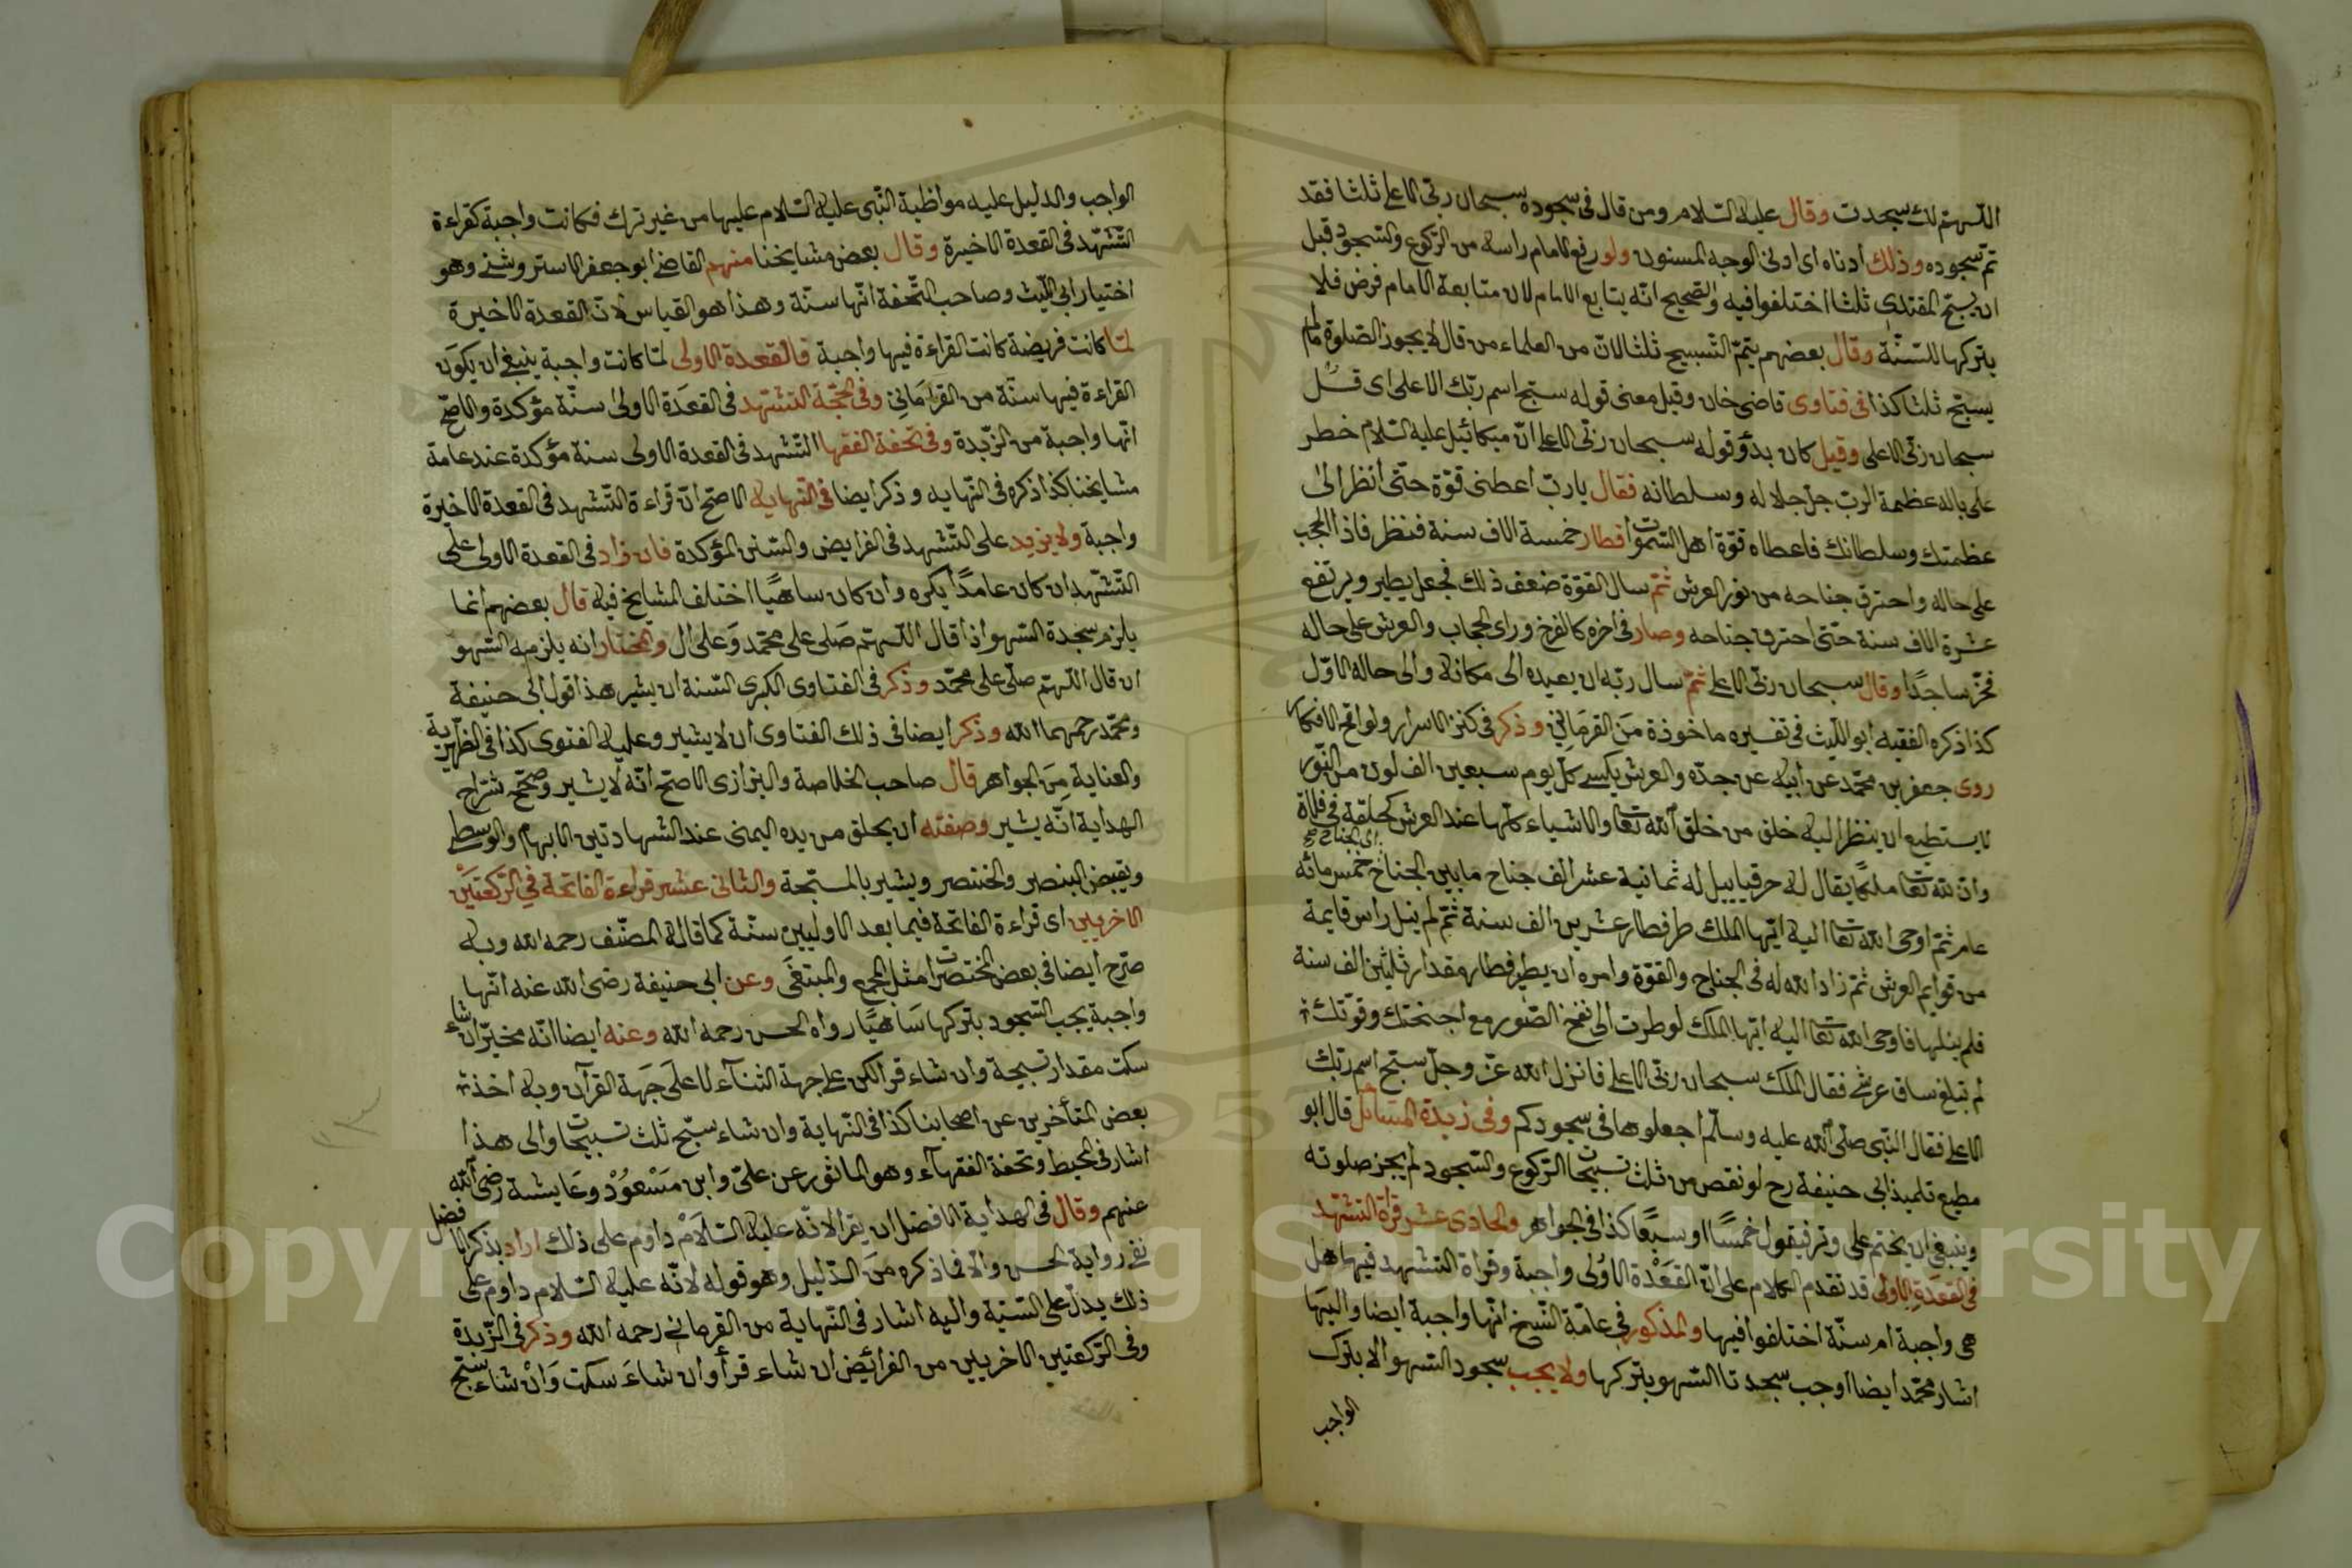 اللّهمّ لك سجدت وقال عليه السّلام ومن قال فى سجوده سبحان ربّى الاعلى ثلثا فقد
تمّ سجوده وذلك ادناه اى ادنى الوجه المسنون ولو رفع الامام راسه من الرّكوع والسّجود قبل
ان يسبّح المقتدى ثلثا اختلفوا فيه والصّحيح انّه يتابع الامام لان متابعة الامام فرض فلا
يتركها للسّنّة وقال بعضهم يتمّ التّسبيح ثلثا لانّ من العلماء من قال لا يجوز الصّلوة ما لم
يسبّح ثلثا كذا فى فتاوى قاضى خان وقيل معنى قوله سبّح اسم ربّك الاعلى اى قل
سبحان ربّى الاعلى وقيل كان بدؤ قوله سبحان ربّى الاعلى انّ ميكائيل عليه السّلام خطر
على باله عظمة الرب جلّ جلاله وسلطانه فقال يا ربّ اعطنى قوّة حتّى انظر الى
عظمتك وسلطانك فاعطاه قوّة اهل السّموات فطار خمسة الاف سنة فنظر فاذا الحجب
على حاله واحترق جناحه من نور العرش ثمّ سال القوّة ضعف ذلك فجعل يطير ويرتفع
عشرة الاف سنة حتّى احترق جناحه وصار فى اخره كالفرخ وراى الحجاب والعرش على حاله
فخرّ ساجدًا وقال سبحان ربّى الاعلى ثمّ سال ربّه ان يعيده الى مكانه والى حاله الاوّل
كذا ذكره الفقيه ابو اللّيث فى تفسيره ماخوذة من القرمانى وذكر فى كنز الاسرار ولواقح الافكار
روى جعفر بن محمّد عن ابيه عن جدّه والعرش يكسى كلّ يوم سبعين الف لون من النّور
لا يستطيع ان ينظر اليه خلق من خلق الله تعا والاشياء كلّها عند العرش كحلقة فى فلاة
وان لله تعا ملكًا يقال له حرقياييل له ثمانية عشر الف جناح ما بين الجناح خمس مائه
اى الجناح صح
عام ثمّ اوحى الله تعا اليه ايّها الملك طر فطار عشرين الف سنة ثمّ لم ينل راس قايمة
من قوايم العرش ثمّ زاد الله له فى الجناح والقوّة وامره ان يطير فطار مقدار ثلثين الف سنة
فلم ينلها فاوحى الله تعا اليه ايّها الملك لو طرت الى نفخ الصّور مع اجنحتك وقوّتك
لم تبلغ ساق عرشى فقال الملك سبحان ربّى الاعلى فانزل الله عزّ وجلّ سبّح اسم ربّك
الاعلى فقال النّبى صلّى الله عليه وسلّم اجعلوها فى سجودكم وفى زبدة المسائل قال ابو
مطيع تلميذ ابى حنيفة رح لو نقص من ثلث تسبيحات الرّكوع والسّجود لم يجز صلوته
وينبغى ان يختم على وتر فيقول خمسًا او سبعًا كذا فى الجواهر والحادى عشر قراة التّشهّد
فى القعدة الاولى قد تقدم الكلام على انّ القعدة الاولى واجبة وقراة التّشهد فيها هل
هى واجبة ام سنّة اختلفوا فيها والمذكور فى عامّة النّسخ انّها واجبة ايضا واليها
اشار محمّد ايضا اوجب سجدتا السّهو بتركها ولا يجب سجود السّهو الا بترك
الواجب
الواجب والدليل عليه مواظبة النّبى عليه السّلام عليها من غير ترك فكانت واجبة كقراءة
التّشهّد فى القعدة الاخيرة وقال بعض مشايخنا منهم القاضى ابو جعفر الاستروشنى وهو
اختيار ابى اللّيث وصاحب التّحفة انّها سنّة وهذا هو القياس لانّ القعدة الاخيرة
لمّا كانت فريضة كانت القراءة فيها واجبة فالقعدة الاولى لمّا كانت واجبة ينبغى ان يكون
القراءة فيها سنّة من القرمانى وفى الحجّة التشهّد فى القعدة الاولى سنّة مؤكدة والاصحّ
انّها واجبة من الزّبدة وفى تحفة الفقها التّشهد فى القعدة الاولى سنة مؤكدة عند عامة
مشايخنا كذا ذكره فى النّهايه وذكر ايضا فى النّهايه الاصحّ انّ قراءة التّشهد فى القعدة الاخيرة
واجبة ولا يزيد على التّشهد فى الفرايض والسّنن المؤكدة فان زاد فى القعدة الاولى على
التّشهّد ان كان عامدًا يكره وان كان ساهيًا اختلف المشايخ فيه قال بعضهم انما
يلزم سجدة السّهو اذا قال اللّهمّ صلى على محمّد وعلى ال والمختار انه يلزمه السّهو
ان قال اللّهمّ صلّى على محمّد وذكر فى الفتاوى الكبرى السّنة ان يشير هذا قول ابى حنيفة
ومحمّد رحمهما الله وذكر ايضا فى ذلك الفتاوى ان لا يشير وعليه الفتوى كذا فى الظّهيريّة
والعناية من الجواهر قال صاحب الخلاصة والبزازى الاصحّ انّه لا يشير وصحّح شرّاح
الهداية انّه يشير وصفته ان يحلق من يده اليمنى عند الشهادتين الابهام والوسطى
ويقبض البنصر والخنصر ويشير بالمسبّحة والثانى عشر قراءة الفاتحة في الرّكعتين
الاخريين اى قراءة الفاتحة فيما بعد الاوليين سنّة كما قاله المصنّف رحمه الله وبه
صرّح ايضا فى بعض المختصرات مثل المجمع والمبتغى وعن ابى حنيفة رضى الله عنه انّها
واجبة يجب السّجود بتركها ساهيًا رواه الحسن رحمه الله وعنه ايضا انّه مخيّر ان شاء
سكت مقدار تسبيحة وان شاء قرا لكن على جهة الثنآء لا على جهة القرآن وبه اخذ
بعض المتأخرين عن اصحابنا كذا فى النّهاية وان شاء سبّح ثلث تسبيحات والى هذا
اشار فى المحيط وتحفة الفقهآء وهو الماثور عن علىّ وابن مسعود وعايشة رضى الله
عنهم وقال فى الهداية الافضل ان يقرا لانّه عليه السّلام داوم على ذلك اراد بذكر الافضل
نفى رواية الحسن والا فما ذكره من الدّليل وهو قوله لانّه عليه السّلام داوم على
ذلك يدلّ على السّنيّة واليه اشار فى النّهاية من القرمانى رحمه الله وذكر فى الزّبدة
وفى الرّكعتين الاخريين من الفرائض ان شاء قرأ وان شاء سكت وان شاء سبّح
Copyright © King Saud University